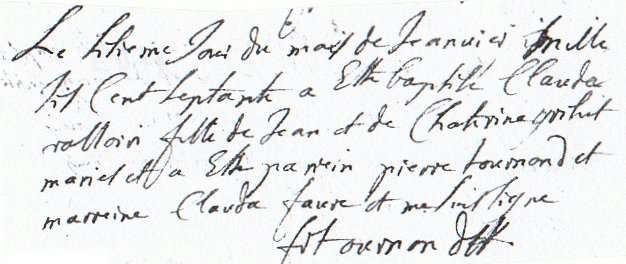 Le sisieme Jour du mois de Jeanvier mille
sis Cent septante a Este baptisé Clauda
rattoin fille de Jean et de Chaterine
mariet et a Este parrein pierre tournond et
marreine Clauda faure et me suis signe